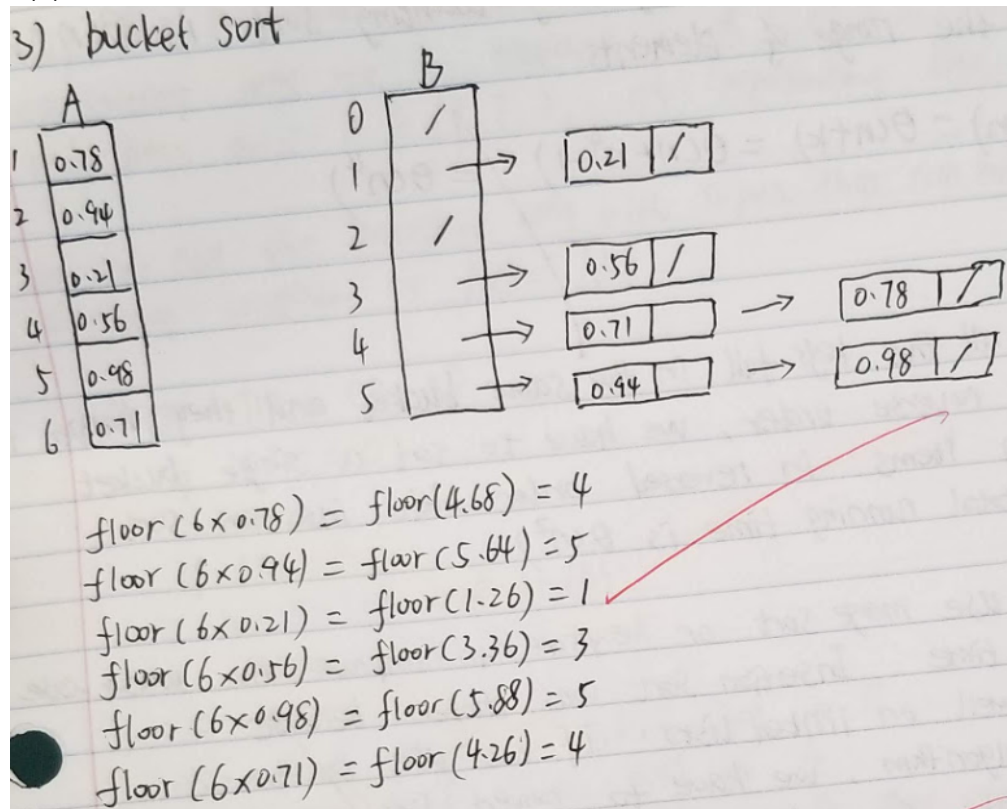 3) bucket sort
A
1 0.78
2 0.94
3 0.21
4 0.56
5 0.98
6 0.71
B
0 /
1 → 0.21 /
2 /
3 → 0.56 /
4 → 0.71 → 0.78 /
5 → 0.94 → 0.98 /
floor (6×0.78) = floor(4.68) = 4
floor (6×0.94) = floor(5.64) = 5
floor (6×0.21) = floor(1.26) = 1
floor (6×0.56) = floor(3.36) = 3
floor (6×0.98) = floor(5.88) = 5
floor (6×0.71) = floor(4.26) = 4